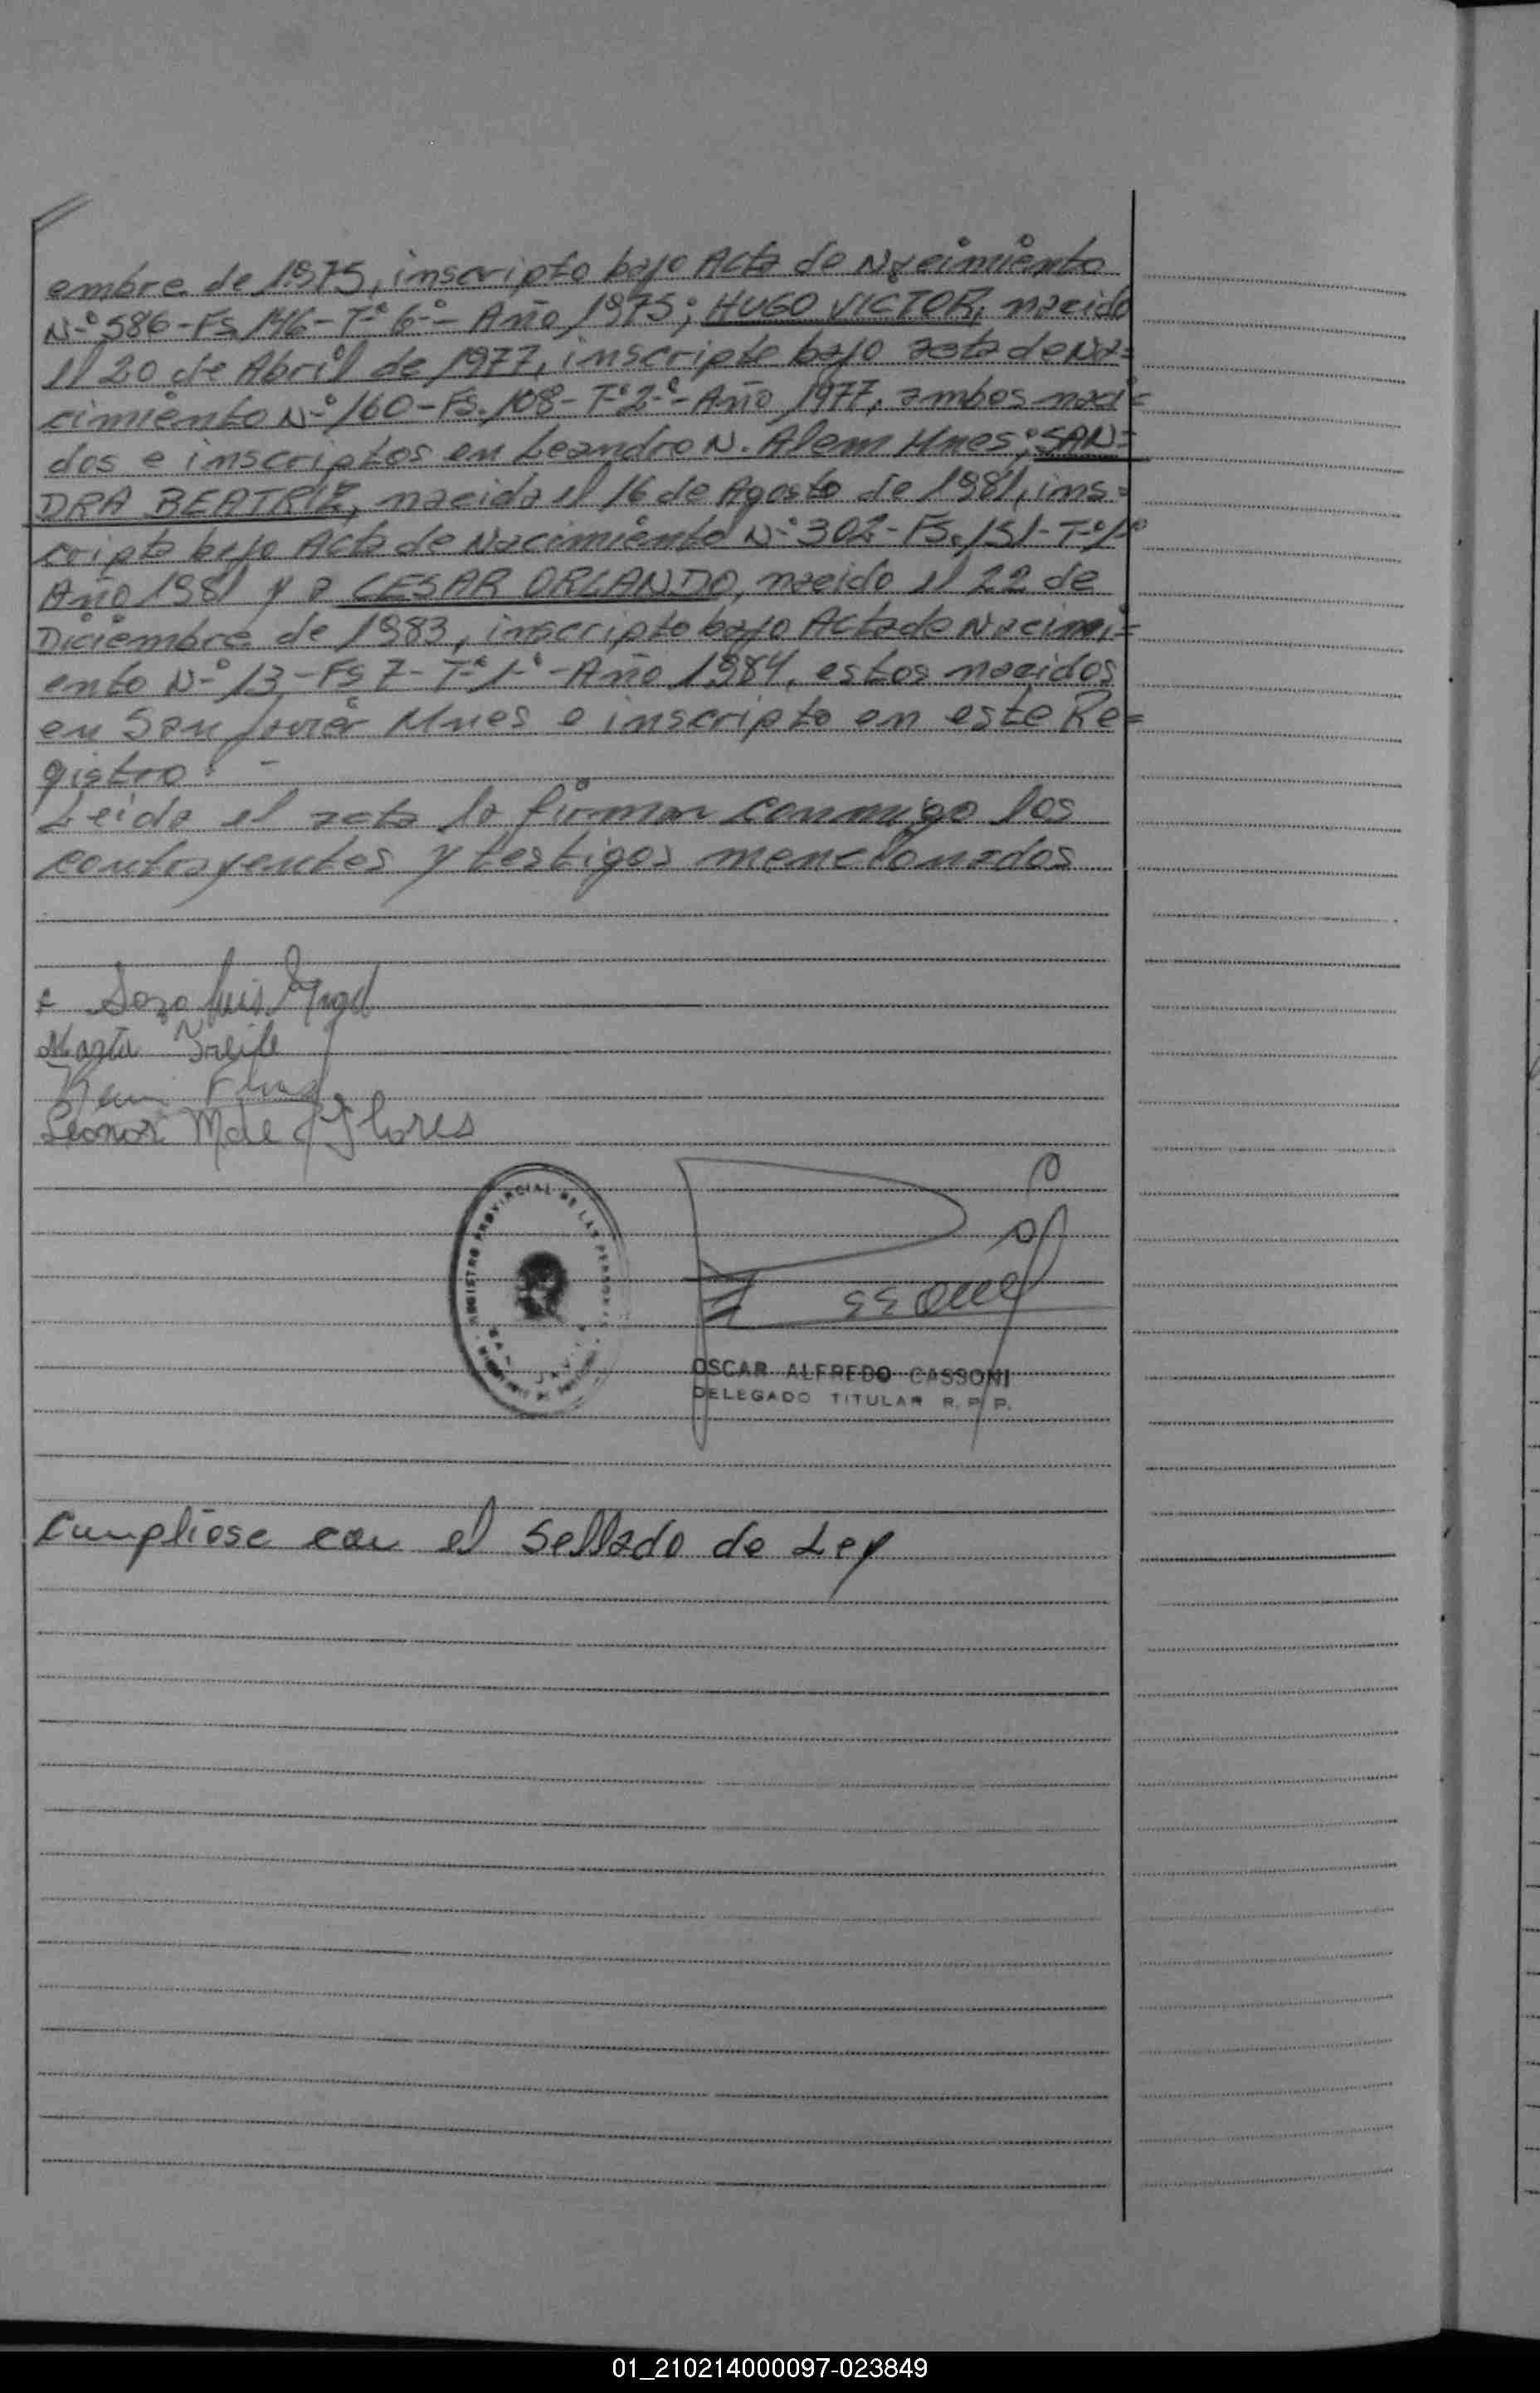 embre de 1975, inscripto bajo Acta de Nacimiento
N-º 586-Fs 146-T-º 6-º- Año 1975; HUGO VICTOR, nacido
el 20 de Abril de 1977, inscripto bajo acta de Na=
cimiento N-º 160-Fs. 108-T-º 2-º- Año 1977, ambos naci=
dos e inscriptos en Leandro N. Alem Mnes; SAN=
DRA BEATRIZ, nacida el 16 de Agosto de 1981, ins=
cripta bajo Acta de Nacimiento N-º 302-Fs. 151-T-º 1-º
Año 1981 y a CESAR ORLANDO, nacido el 22 de
Diciembre de 1983, inscripto bajo Acta de Nacimi=
ento N-º 13-Fs 7-T-º 1-º-Año 1984, estos nacidos
en San Javier Mnes e inscripto en este Re=
gistro: -
Leida el acta la firman conmigo los
contrayentes y testigos mencionados
Luis Angel
Marta
Leonor M de Flores
REGISTRO PROVINCIAL DE LAS PERSONAS
OSCAR ALFREDO CASSONI
DELEGADO TITULAR R. P. P.
Cumpliose con el Sellado de Ley
01_210214000097-023849